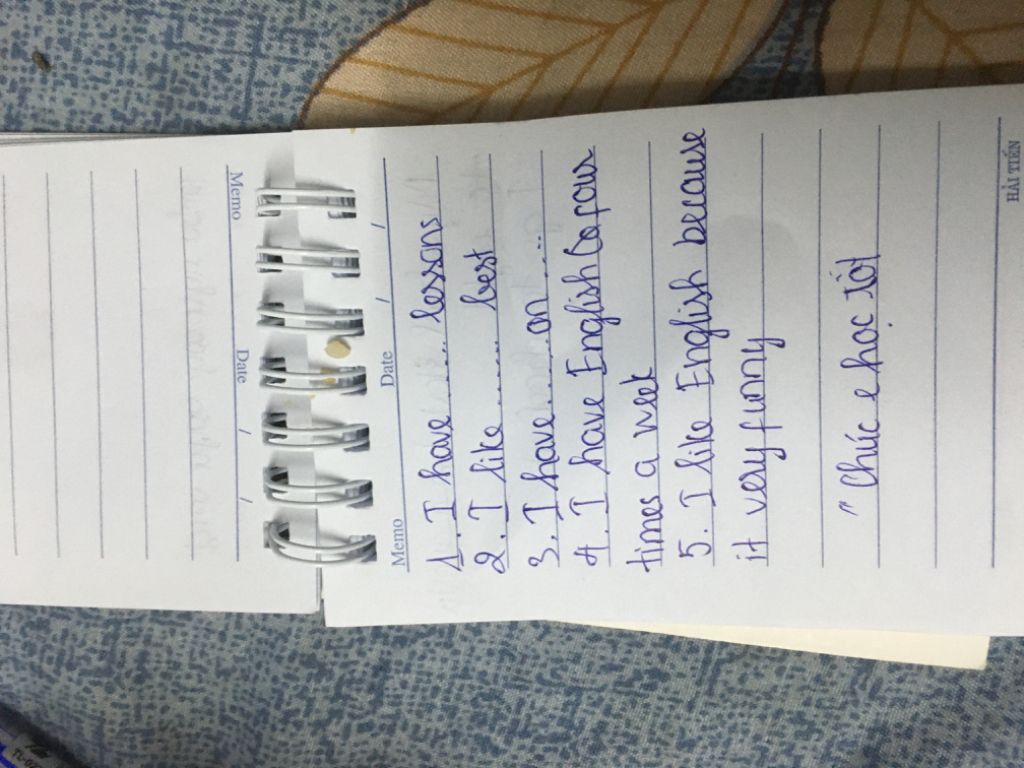 Memo
Date / /
Memo
Date / /
1. I have ........ lessons
2. I like ........ best
3. I have ........ on ........
4. I have English Co four
times a week
5. I like English because
it very funny
" Chúc e học tốt
HẢI TIẾN